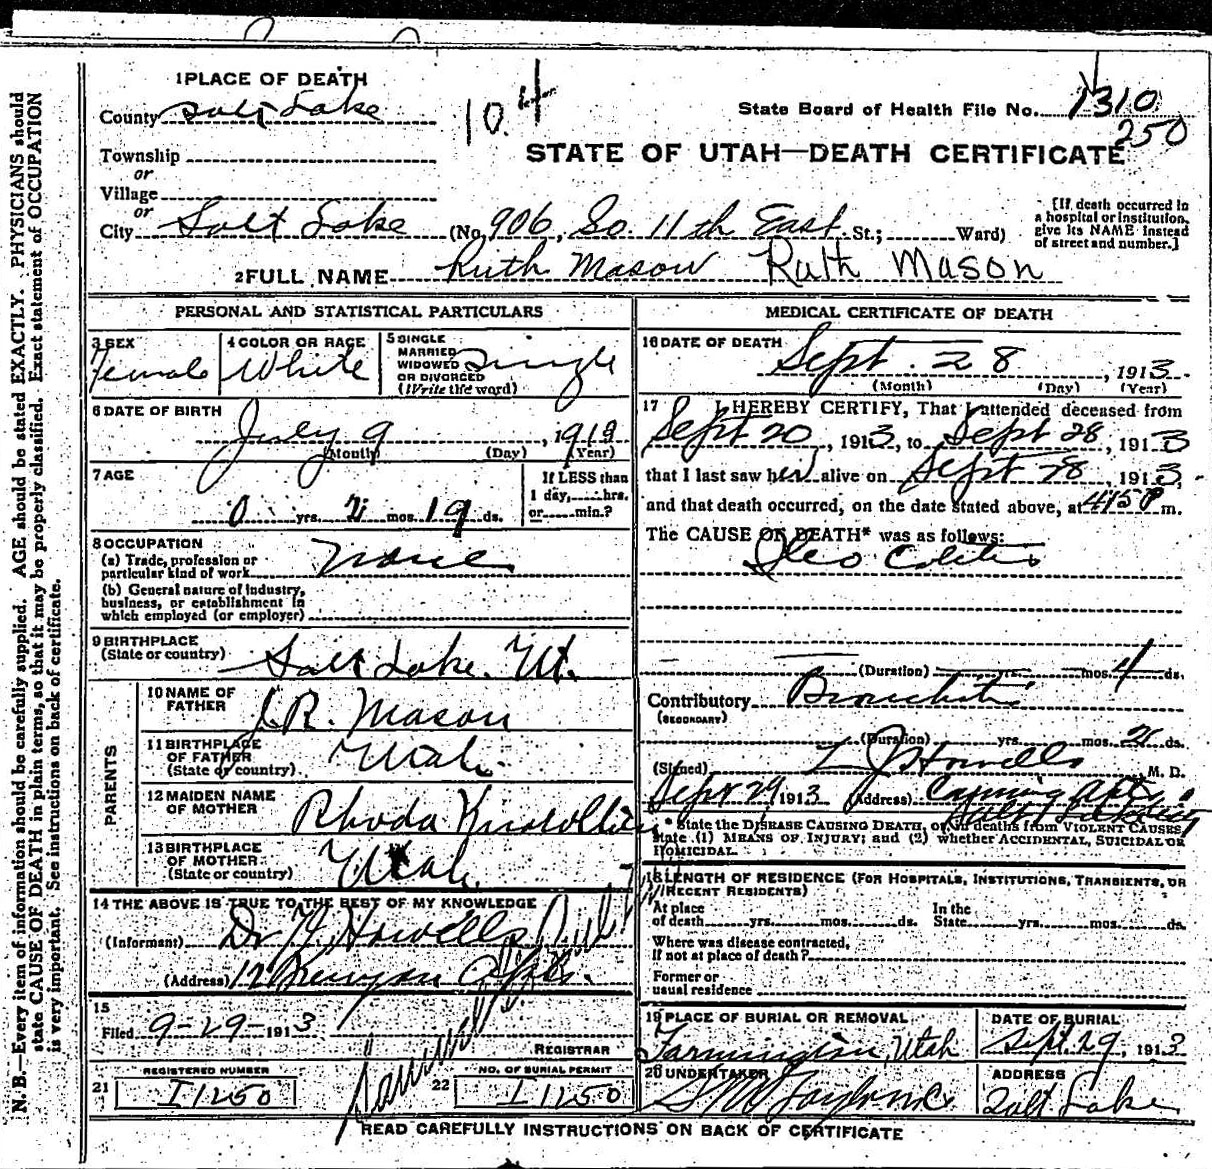 1 PLACE OF DEATH
County Salt Lake
10.4
State Board of Health File No. 1310
250
STATE OF UTAH—DEATH CERTIFICATE
Township
or
Village
or
City Salt Lake (No. 906, So. 11th East St.; Ward)
[If death occurred in a hospital or institution, give its NAME instead of street and number.]
2 FULL NAME Ruth Mason Ruth Mason
PERSONAL AND STATISTICAL PARTICULARS
3 SEX
Female
4 COLOR OR RACE
White
5 SINGLE MARRIED WIDOWED OR DIVORCED (Write the word)
Single
6 DATE OF BIRTH
July 9, 1913
(Month) (Day) (Year)
7 AGE
0 yrs. 2 mos. 19 ds.
If LESS than 1 day, hrs. or min.?
8 OCCUPATION
(a) Trade, profession or particular kind of work None
(b) General nature of industry, business, or establishment in which employed (or employer)
9 BIRTHPLACE
(State or country) Salt Lake. Ut.
PARENTS
10 NAME OF FATHER J.R. Mason
11 BIRTHPLACE OF FATHER (State or country) Utah.
12 MAIDEN NAME OF MOTHER Rhoda
13 BIRTHPLACE OF MOTHER (State or country) Utah.
14 THE ABOVE IS TRUE TO THE BEST OF MY KNOWLEDGE
(Informant) Dr. Howells
(Address) 12 Kenyon Apts.
15
Filed 9-29-1913
REGISTRAR
21 REGISTERED NUMBER
I 1250
22 NO. OF BURIAL PERMIT
I 1250
MEDICAL CERTIFICATE OF DEATH
16 DATE OF DEATH
Sept. 28, 1913
(Month) (Day) (Year)
17 I HEREBY CERTIFY, That I attended deceased from
Sept 20, 1913, to Sept 28, 1913
that I last saw her alive on Sept 28, 1913,
and that death occurred, on the date stated above, at 415 P m.
The CAUSE OF DEATH* was as follows:
Ileo Colitis
(Duration) yrs. mos. ds.
Contributory Bronchitis
(SECONDARY)
(Duration) yrs. mos. ds.
(Signed) L J Howells M. D.
Sept 29 1913 (Address)
* State the DISEASE CAUSING DEATH, or, in deaths from VIOLENT CAUSES,
state (1) MEANS OF INJURY; and (2) whether ACCIDENTAL, SUICIDAL OR
HOMICIDAL.
18 LENGTH OF RESIDENCE (FOR HOSPITALS, INSTITUTIONS, TRANSIENTS, OR RECENT RESIDENTS)
At place of death yrs. mos. ds. In the State yrs. mos. ds.
Where was disease contracted, if not at place of death?
Former or usual residence
19 PLACE OF BURIAL OR REMOVAL
Farmington, Utah
DATE OF BURIAL
Sept. 29, 1913
20 UNDERTAKER
S M Taylor & Co
ADDRESS
Salt Lake
READ CAREFULLY INSTRUCTIONS ON BACK OF CERTIFICATE
N. B.—Every item of information should be carefully supplied. AGE should be stated EXACTLY. PHYSICIANS should
state CAUSE OF DEATH in plain terms, so that it may be properly classified. Exact statement of OCCUPATION
is very important. See instructions on back of certificate.